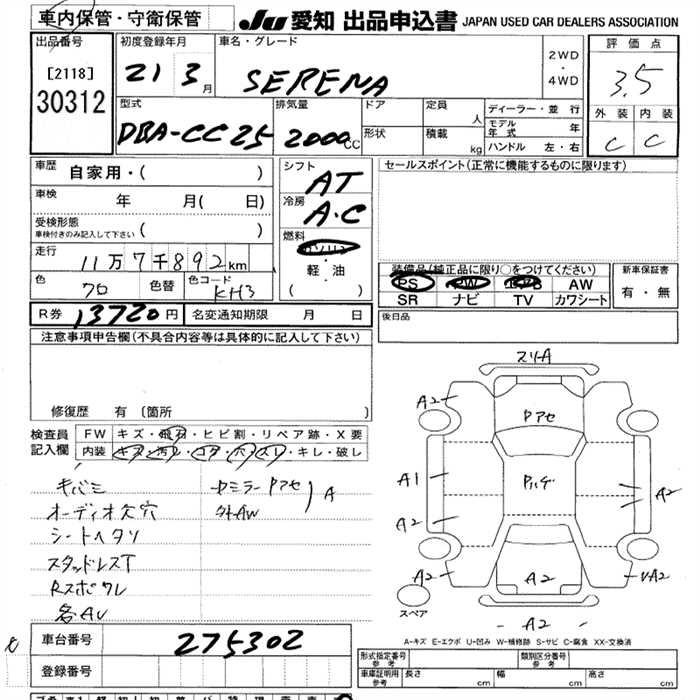 車内保管・守衛保管
JU 愛知 出品申込書 JAPAN USED CAR DEALERS ASSOCIATION
出品番号
[2118]
30312
初度登録年月
21 3月
車名・グレード
SERENA
2WD
・
4WD
評価点
3.5
外装 内装
C C
型式
DBA-CC25
排気量
2000CC
ドア
形状
定員
人
積載
kg
ディーラー・並行
モデル年式 年
ハンドル 左・右
車歴
自家用・( )
車検
年 月( 日)
受検形態
車検付きのみ記入して下さい
( )
走行
11万7千892km
色
クロ
色替
色コード
KH3
シフト
AT
冷房
A・C
燃料
ガソリン
・
軽・油
( )
セールスポイント(正常に機能するものに限ります)
装備品(純正品に限り○をつけてください)
PS PW AW
SR ナビ TV カワシート
新車保証書
有・無
R券 13720円
名変通知期限 月 日
後日品
注意事項申告欄(不具合内容等は具体的に記入して下さい)
修復歴 有 〔箇所 〕
検査員
記入欄
FW キズ・飛石・ヒビ割・リペア跡・X要
内装 キズ・汚レ・コゲ・穴・スレ・キレ・破し
キバミ
オーディオ欠穴
シートヘタリ
スタッドレスT
Rスポワレ
各AU
A
外AW
スリーA
A2
A1
A2
A2
A2
A2
A2
A2
スペア
A-キズ E-エクボ U-凹み W-補修跡 S-サビ C-腐食 XX-交換済
車台番号
275302
登録番号
形式指定番号
参考
類別区分番号
参考
車庫証明用
参考
長さ cm
幅 cm
高さ cm